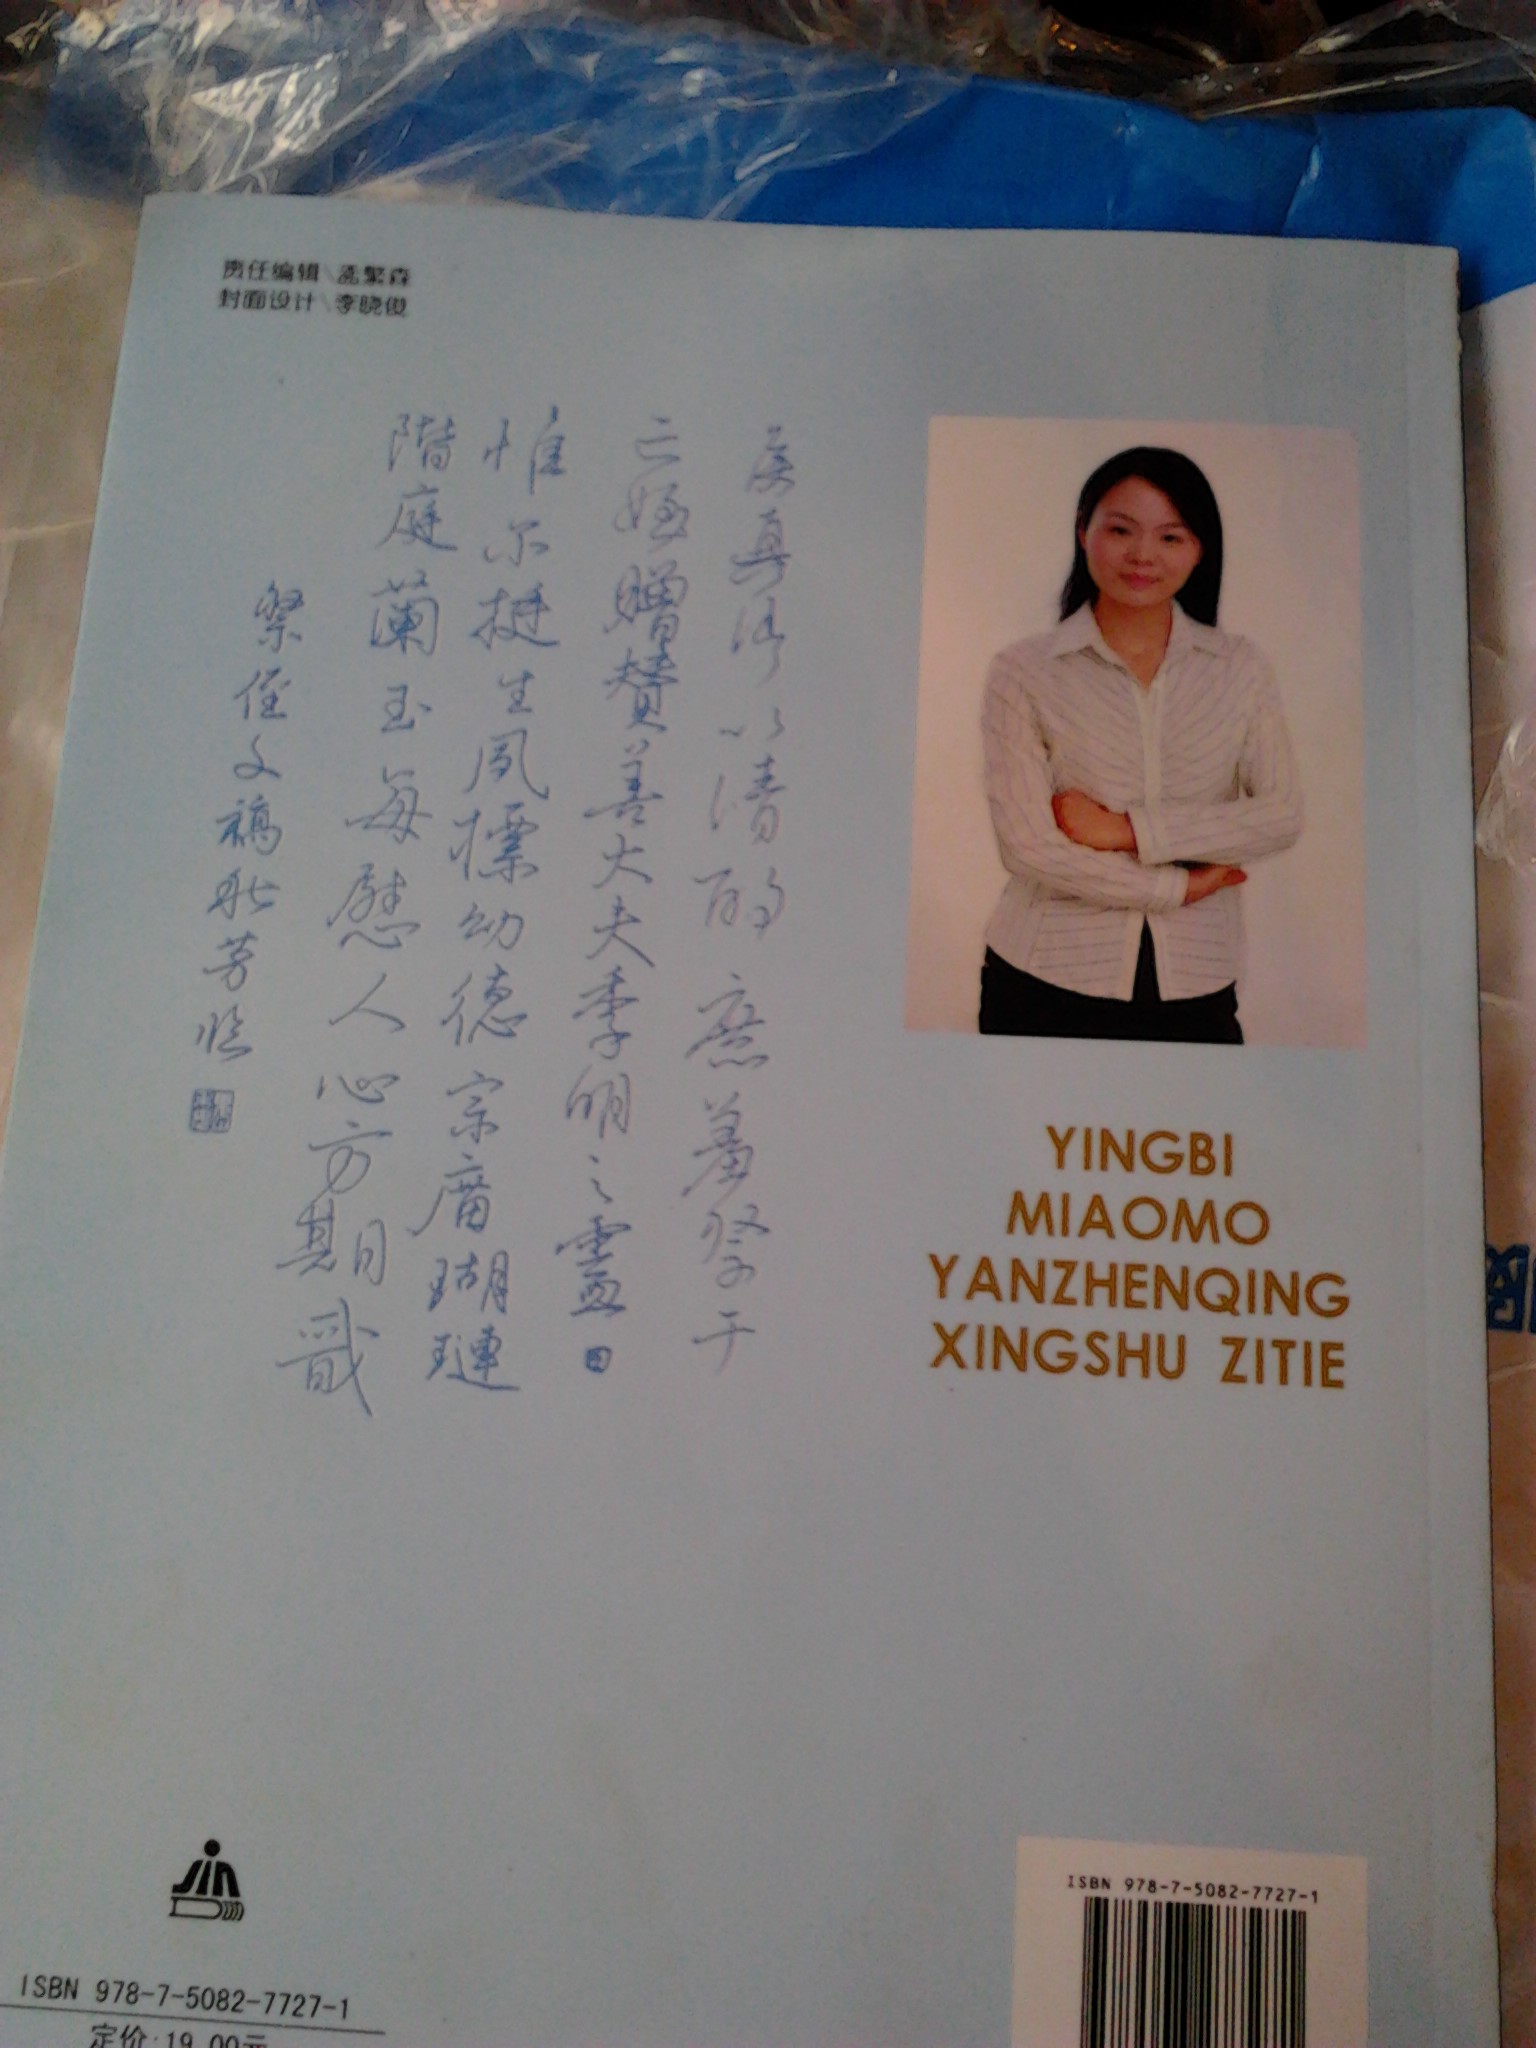 责任编辑\孟繁森
封面设计\李晓俊
侯真卿以清酌庶羞祭于
亡姪赠赞善大夫季明之靈曰
惟尔挺生夙標幼德宗廟瑚璉
階庭蘭玉每慰人心方期戩
祭侄文稿 秋芳臨
YINGBI
MIAOMO
YANZHENQING
XINGSHU ZITIE
JIN
ISBN 978-7-5082-7727-1
ISBN 978-7-5082-7727-1
定价:19.00元